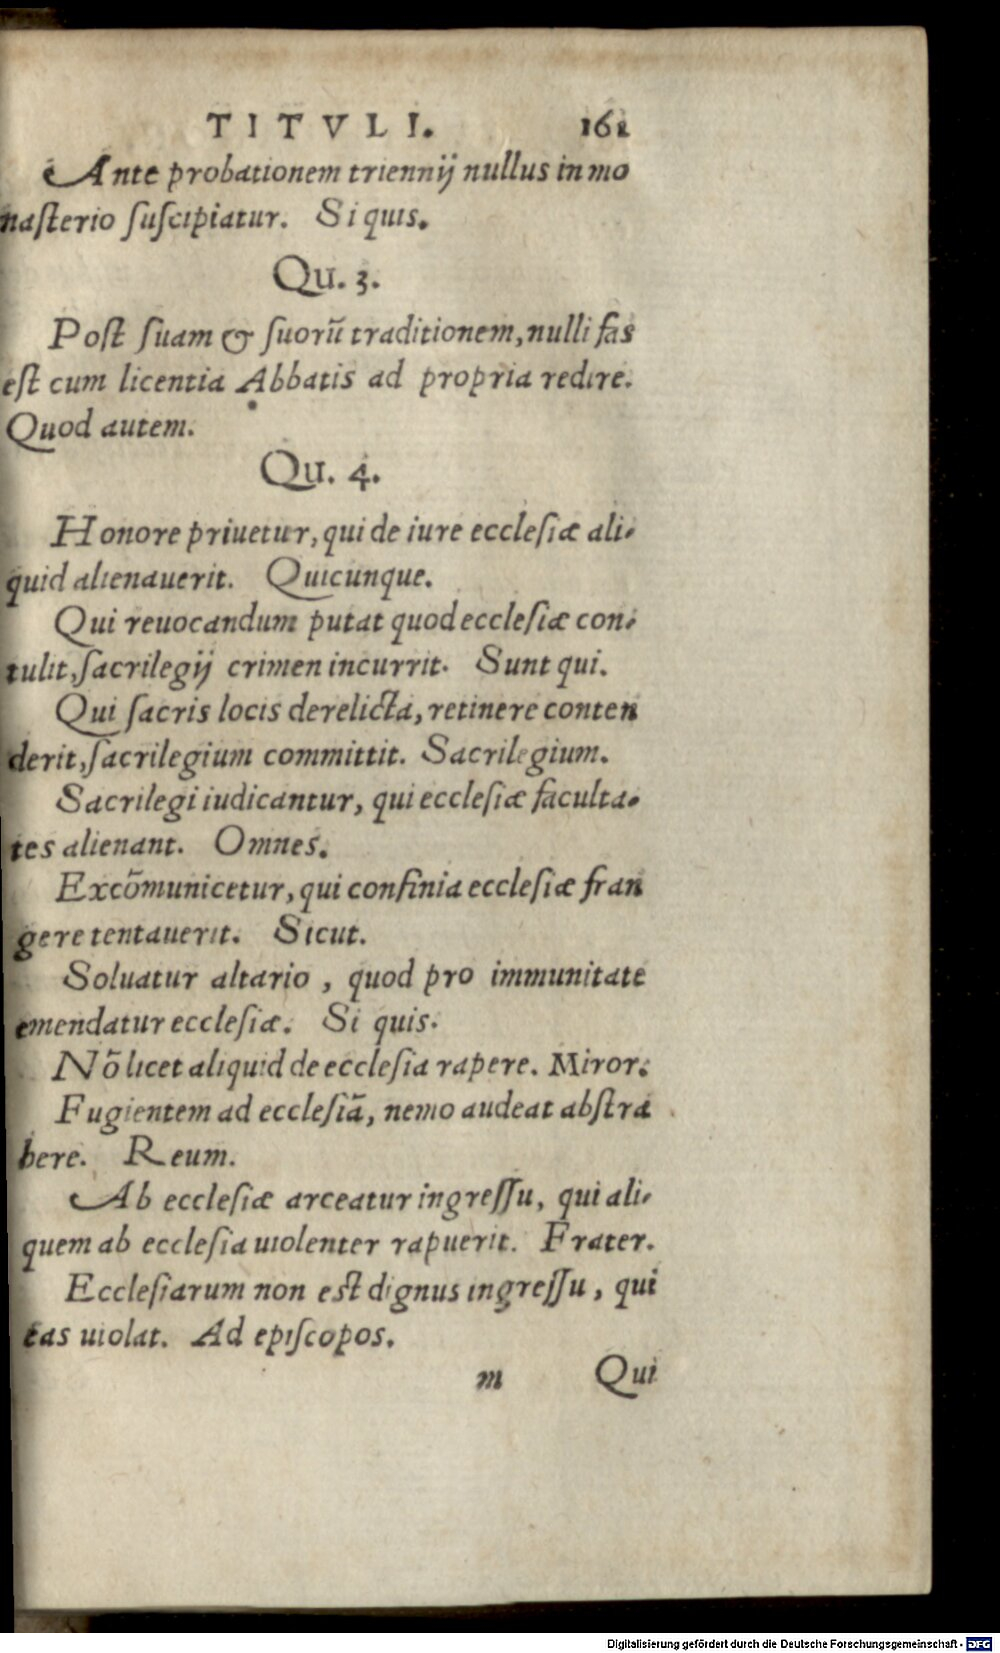 TITVLI. 161
Ante probationem triennij nullus in mo
nasterio suscipiatur. Si quis.
Qu. 3.
Post suam & suorũ traditionem, nulli fas
est cum licentia Abbatis ad propria redire.
Quod autem.
Qu. 4.
Honore priuetur, qui de iure ecclesiæ ali-
quid alienauerit. Quicunque.
Qui reuocandum putat quod ecclesiæ con-
tulit, sacrilegij crimen incurrit. Sunt qui.
Qui sacris locis derelicta, retinere conten
derit, sacrilegium committit. Sacrilegium.
Sacrilegi iudicantur, qui ecclesiæ faculta-
tes alienant. Omnes.
Excõmunicetur, qui confinia ecclesiæ fran
gere tentauerit. Sicut.
Soluatur altario, quod pro immunitate
emendatur ecclesiæ. Si quis.
Nõ licet aliquid de ecclesia rapere. Miror.
Fugientem ad ecclesiã, nemo audeat abstra
here. Reum.
Ab ecclesiæ arceatur ingressu, qui ali-
quem ab ecclesia uiolenter rapuerit. Frater.
Ecclesiarum non est dignus ingressu, qui
eas uiolat. Ad episcopos.
m Qui
Digitalisierung gefördert durch die Deutsche Forschungsgemeinschaft - DFG